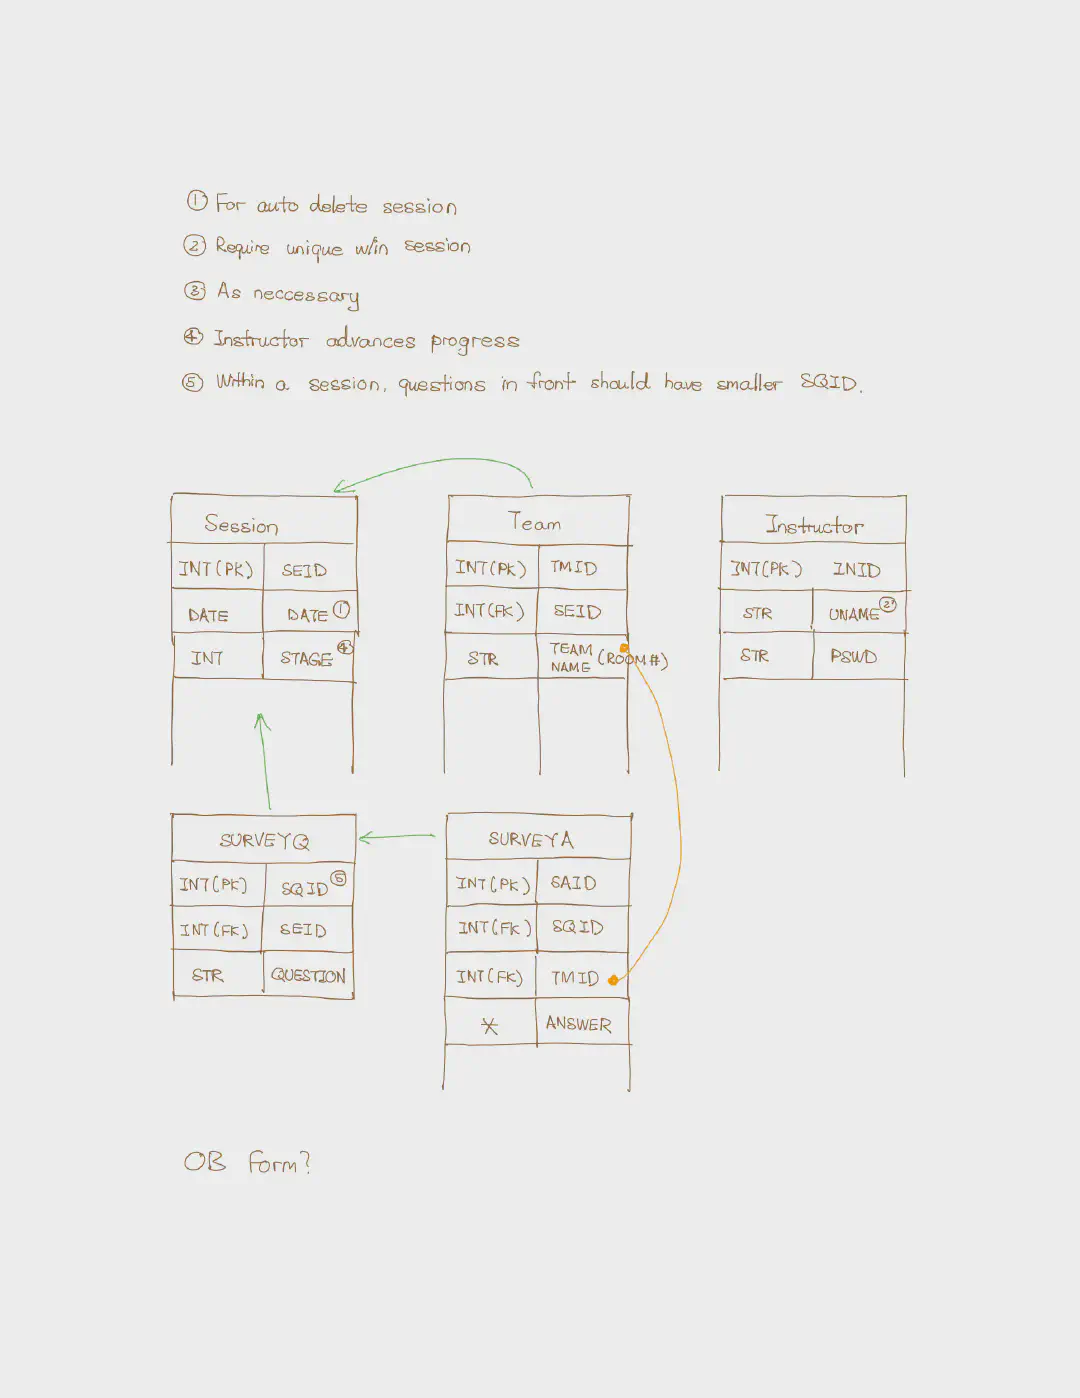 ① For auto delete session
② Require unique w/in session
③ As neccessary
④ Instructor advances progress
⑤ Within a session, questions in front should have smaller SQID.
Session
INT(PK) SEID
DATE DATE ①
INT STAGE ④
Team
INT(PK) TMID
INT(FK) SEID
STR TEAM NAME (ROOM#)
Instructor
INT(PK) INID
STR UNAME ②
STR PSWD
SURVEYQ
INT(PK) SQID ⑤
INT(FK) SEID
STR QUESTION
SURVEYA
INT(PK) SAID
INT(FK) SQID
INT(FK) TMID
* ANSWER
OB form?